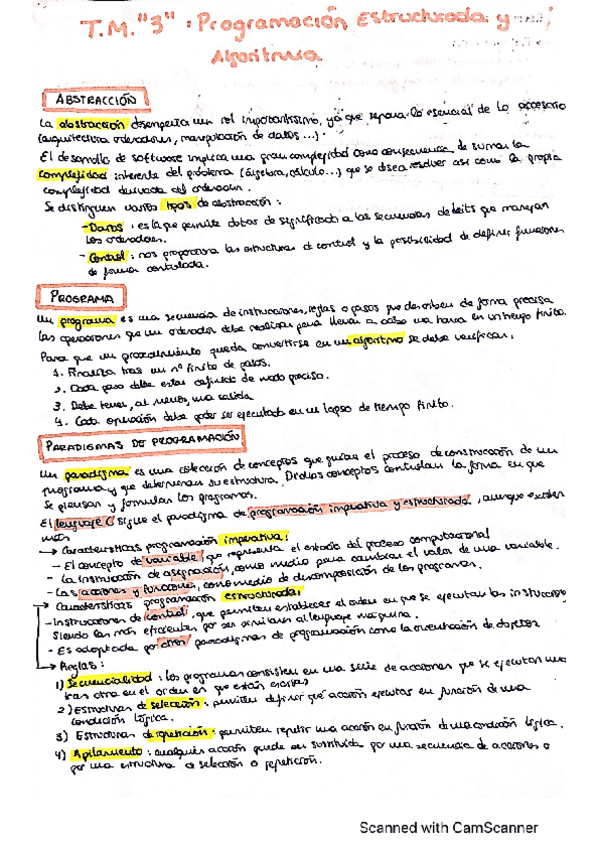 T.M. "3" : Programación Estructurada y
Algoritmia
ABSTRACCIÓN
La abstracción desempeña un rol importantísimo, ya que separa lo esencial de lo accesorio
(arquitectura ordenadores, manipulación de datos...).
El desarrollo de software implica una gran complejidad como consecuencia de sumar la
complejidad inherente del problema (álgebra, cálculo...) que se desea resolver así como la propia
complejidad derivada del ordenador.
Se distinguen varios tipos de abstracción :
- Datos : es la que permite dotar de significado a las secuencias de bits que manejan
los ordenadores.
- Control : nos proporciona las estructuras de control y la posibilidad de definir funciones
de forma controlada.
PROGRAMA
Un programa es una secuencia de instrucciones, reglas o pasos que describen de forma precisa
las operaciones que un ordenador debe realizar para llevar a cabo una tarea en un tiempo finito.
Para que un procedimiento pueda convertirse en un algoritmo se debe verificar :
1. Finaliza tras un nº finito de pasos.
2. Cada paso debe estar definido de modo preciso.
3. Debe tener, al menos, una salida
4. Cada operación debe poder ser ejecutada en un lapso de tiempo finito.
PARADIGMAS DE PROGRAMACIÓN
Un paradigma es una colección de conceptos que guían el proceso de construcción de un
programa y que determinan su estructura. Dichos conceptos controlan la forma en que
se piensan y formulan los programas.
El lenguaje C sigue el paradigma de programación imperativa y estructurada, aunque existen
más
→ Características programación imperativa :
- El concepto de variable, que representa el estado del proceso computacional
- La instrucción de asignación, como medio para cambiar el valor de una variable.
- Las acciones y funciones, como medio de descomposición de los programas.
→ Características programación estructurada :
- Instrucciones de control, que permiten establecer el orden en que se ejecutan las instrucciones
siendo las más eficientes por ser similares al lenguaje máquina.
- Es adoptada por otros paradigmas de programación como la orientación de objetos
→ Reglas :
1) Secuencialidad : los programas consisten en una serie de acciones que se ejecutan una
tras otra en el orden en que están escritas
2) Estructuras de selección : permiten definir qué acción ejecutar en función de una
condición lógica.
3) Estructuras de repetición : permiten repetir una acción en función de una condición lógica.
4) Apilamiento : cualquier acción puede ser sustituida por una secuencia de acciones o
por una estructura de selección o repetición.
Scanned with CamScanner